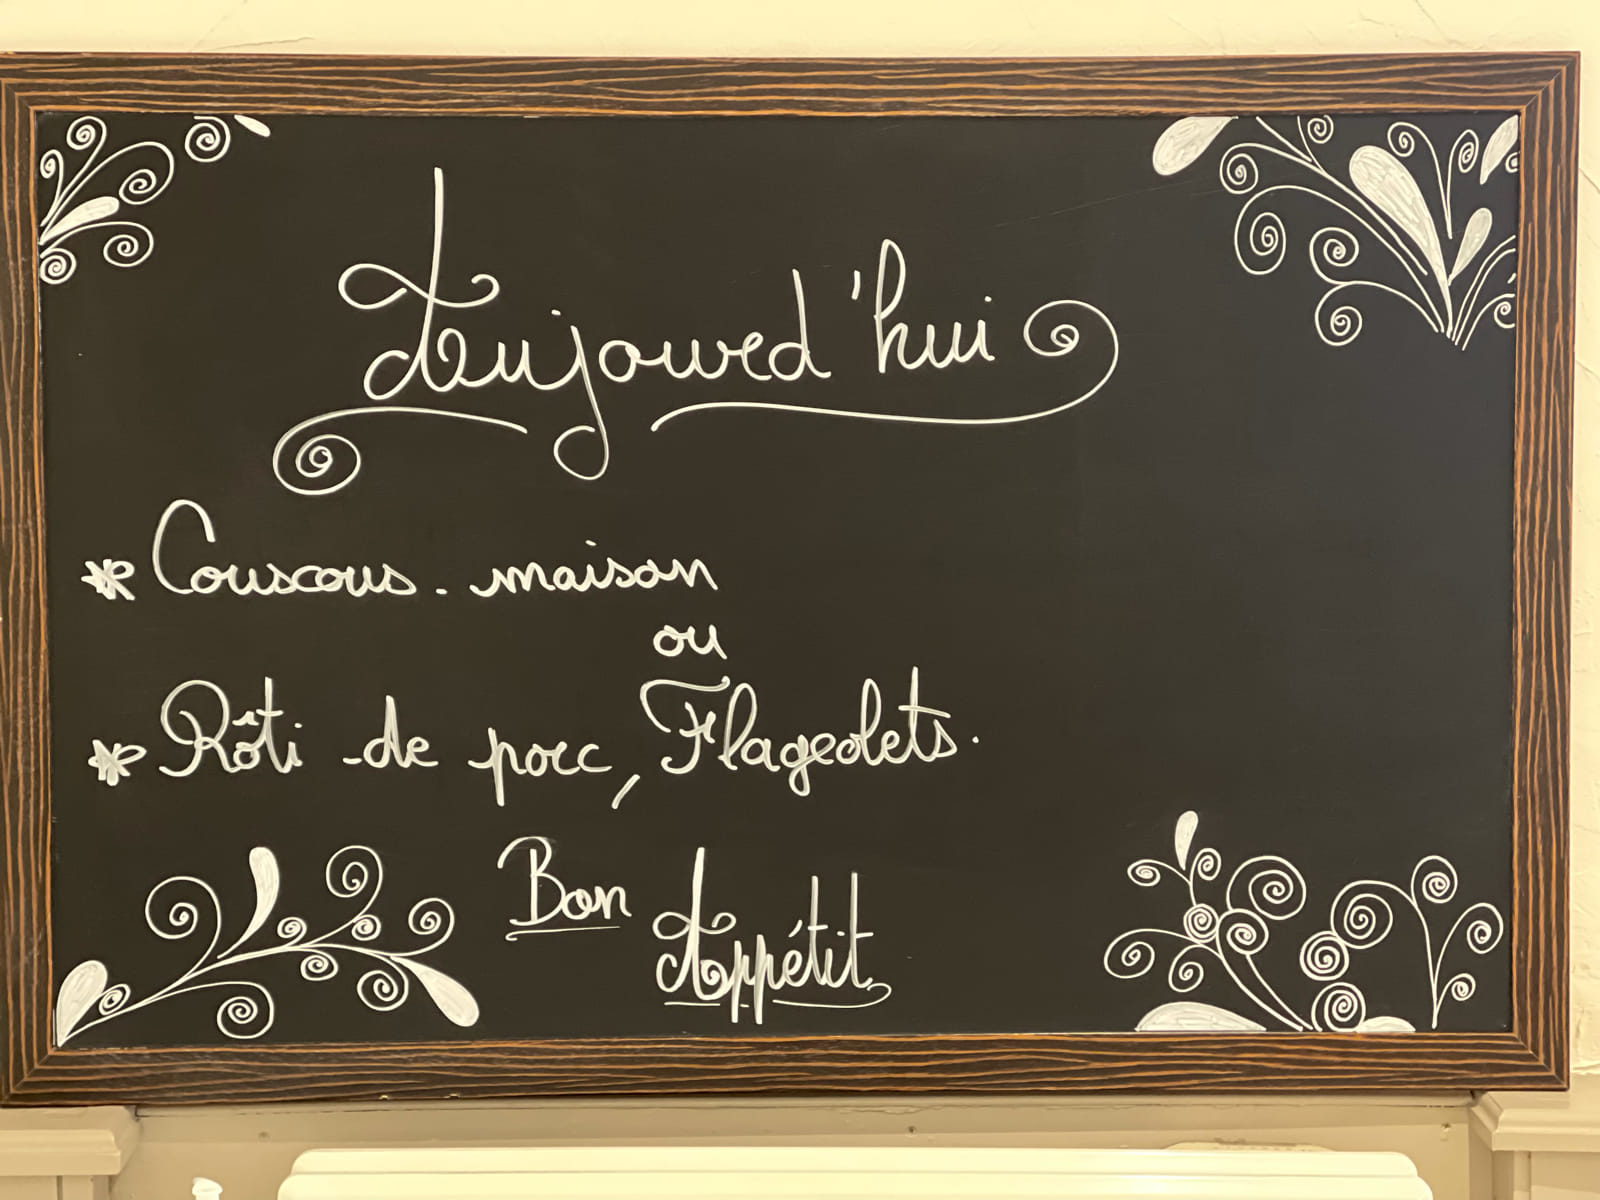 Aujourd'hui
* Couscous. maison
ou
* Rôti de porc, Flageolets.
Bon Appétit